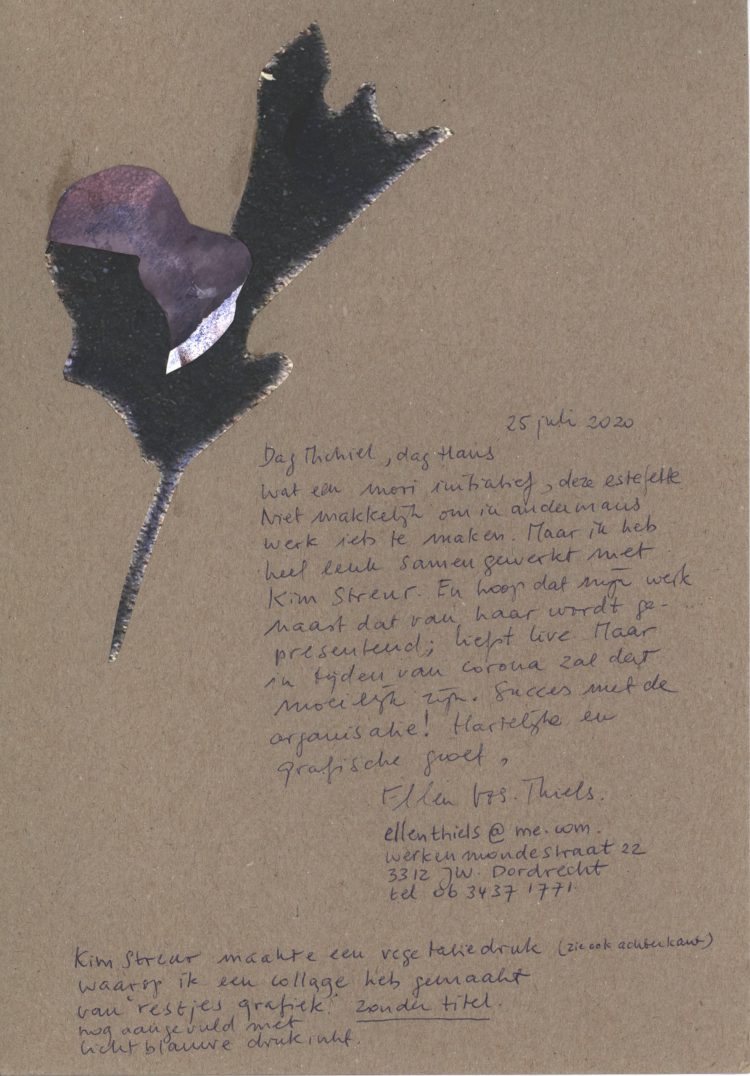 25 juli 2020
Dag Michiel, dag Hans
wat een mooi initiatief, deze estafette
Niet makkelijk om in andermans
werk iets te maken. Maar ik heb
heel leuk samengewerkt met
Kim Streur. En hoop dat mijn werk
naast dat van haar wordt ge-
presenteerd; liefst live Maar
in tijden van corona zal dat
moeilijk zijn. Succes met de
organisatie! Hartelijke en
grafische groet,
Ellen Thiels.
ellenthiels@me.com.
werken mondestraat 22
3312 JW. Dordrecht
tel 06 3437 1771
Kim Streur maakte een vegetatiedruk (zie ook achterkant)
waarop ik een collage heb gemaakt
van "restjes grafiek" zonder titel.
nog aangevuld met
licht blauwe drukinkt.